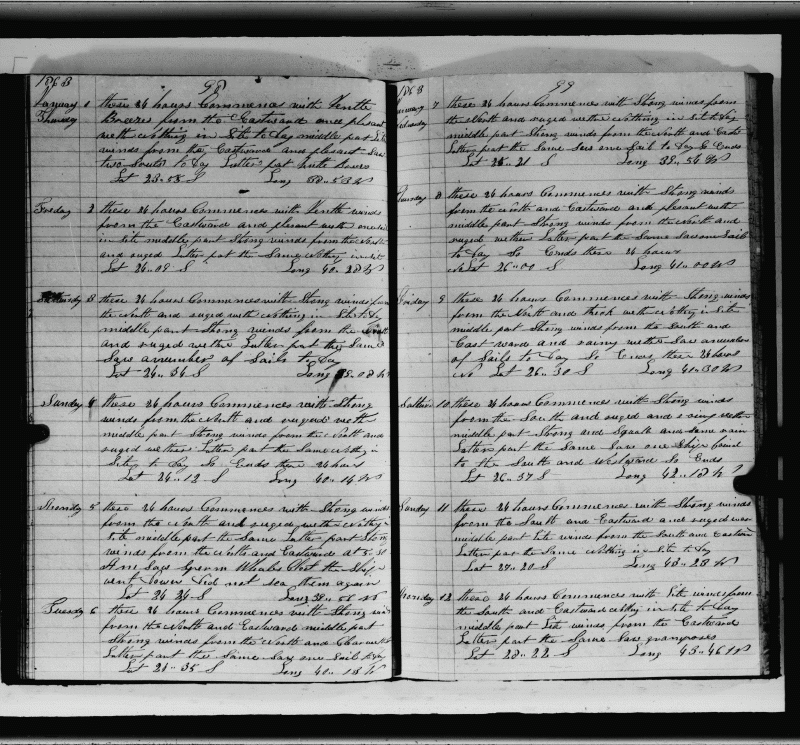 1863
98
January 1 these 24 hours Commences with Gentle
Thursday Breezes from the Eastward and pleasant
weth Nothing in Site to day middle part Lite
winds from the Eastward and pleasant Saw
two Sails to day Latter part
Lat 23-58 S Long 38-53 W
Freday 2 these 24 hours Commences with Gentle winds
from the Eastward and plesant weth
in site middle part Strong winds from the North
and ruged Latter part the Same Nothing in site
Lat 24-08 S Long 40-28 W
3 these 24 hours Commences with Stong winds from
the North and ruged weth nothing in Site to day
middle part Strong winds from the North
and ruged wether Latter part the Same
Saw anumber of Sails to Day
Lat 24-34 S Long 08 W
Sunday 4 these 24 hours Commences with Stong
winds from the North and rugged weth
middle part Strong winds from the North and
ruged wether Latter part the Same Nothing in
Site to Day So Ends these 24 hours
Lat 24-12 S Long 40-14 W
Monday 5 these 24 hours Commences with Stong winds
from the North and ruged weth Nothing
Site middle part the Same Latter part Stong
winds from the North and Eastward at
Am Saw Sperm Whales Clost the Ship
went Lower did not sea them again
Lat 24 34-S Long 38- W
Tuesday 6 these 24 hours Commences with Stong winds
from the North and Eastward middle part
Strong winds from the North and Clear weth
Latter part the Same Saw one Sail to day
Lat 21-35 S Long 40-18 W
1863
99
January 7 these 24 hours Commences with Stong winds from
the North and ruged wether Nothing in Sit to day
middle part Stong winds from the North and East
Latter part the Same Saw one Sail to Day So Ends
Lat 25-21 S Long 38-54 W
8 these 24 hours Commences with Stong winds
from the North and Eastward and plesant weth
middle part Strong winds from the North and
ruged wether Latter part the Same Saw one Sail
to Day So Ends these 24 hours
Lat 26-00 S Long 41-00 W
Friday 9 these 24 hours Commences with Stong winds
from the North and thick weth nothing in Site
middle part Stong winds from the South and
Eastward and rainy wether Saw anumber
of Sails to day So Ends these 24 hours
Lat 26-30 S Long 41-30 W
10 these 24 hours Commences with Stong winds
from the South and ruged and rainy weth
middle part Strong and Squalls and some rain
Latter part the Same Saw one Ship bound
to the South and westward So Ends
Lat 26-37 S Long 42-18 W
Sunday 11 these 24 hours Commences with Strong winds
from the South and Eastward and ruged
middle part Lite winds from the South and Eastward
Latter part the Same Nothing in Site to day
Lat 27-20 S Long 43-28 W
Monday 12 these 24 hours Commences with Lite winds from
the South and Eastward nothing in Site to day
middle part Lite winds from the Eastward
Latter part the Same Saw gramposes
Lat 28-22 S Long 43-46 W